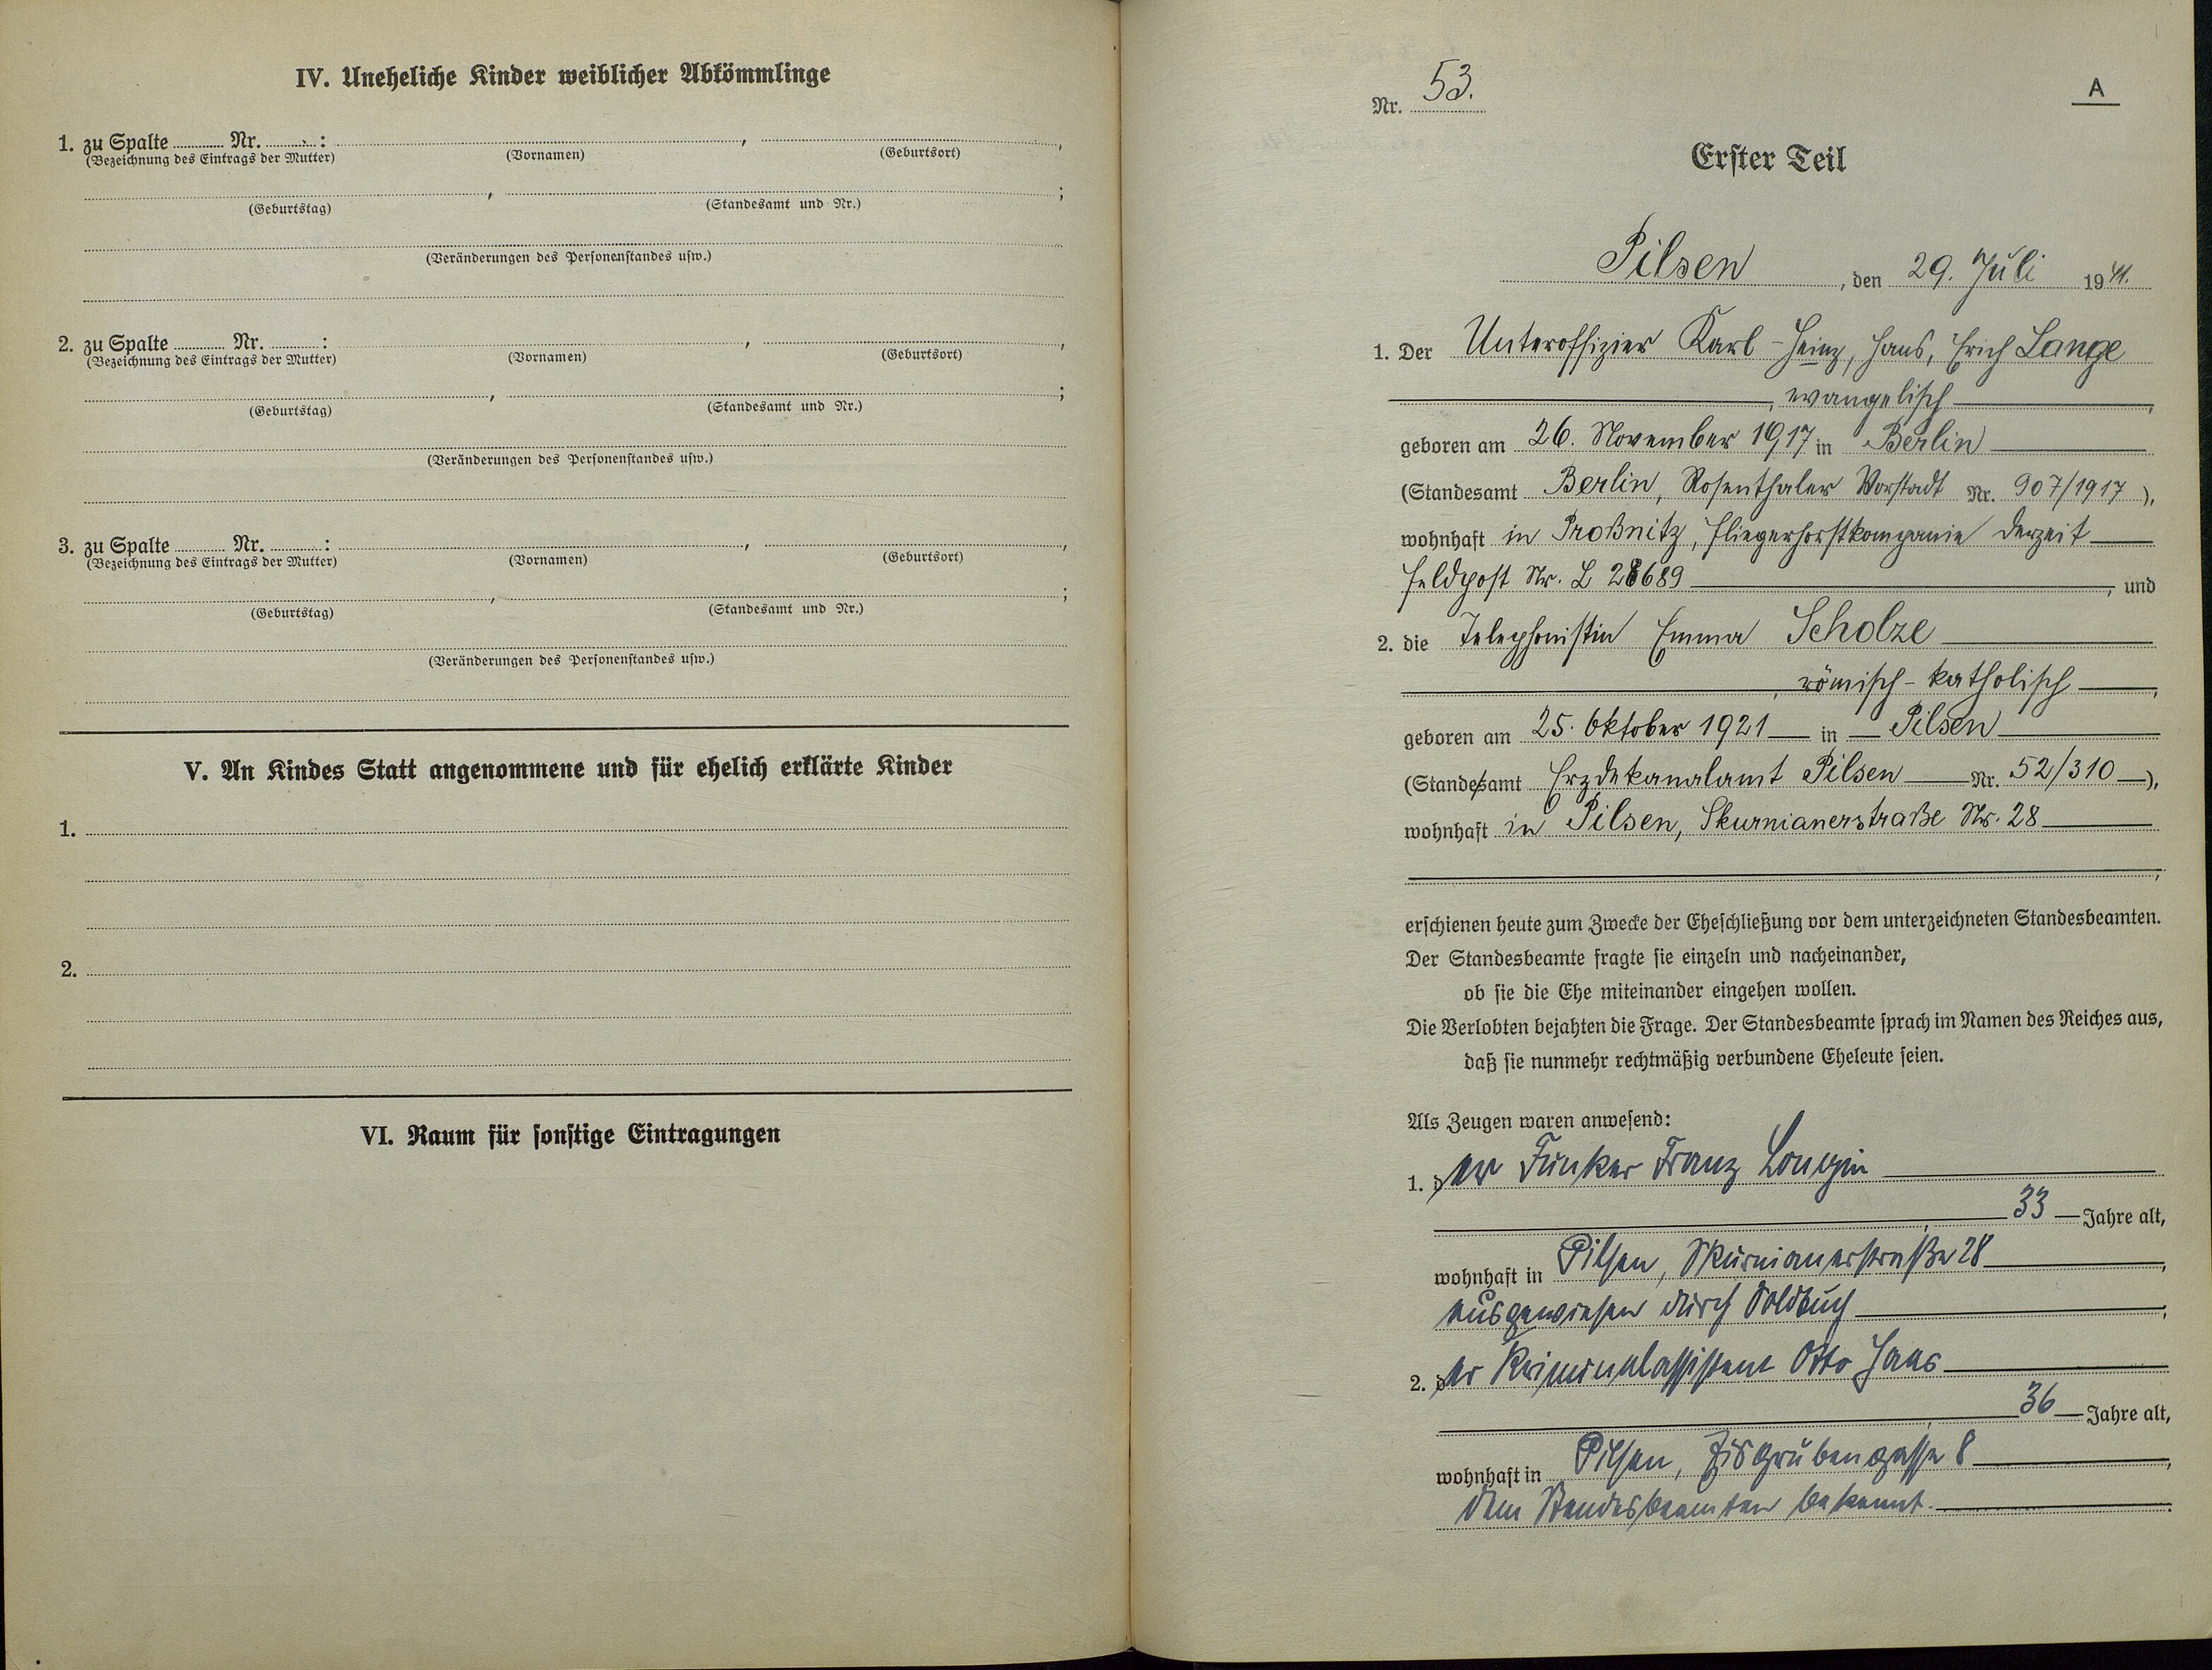 IV. Uneheliche Kinder weiblicher Abkömmlinge
1. zu Spalte ........ Nr. ........ : ........, ........,
(Bezeichnung des Eintrags der Mutter) (Vornamen) (Geburtsort)
........, ........;
(Geburtstag) (Standesamt und Nr.)
(Veränderungen des Personenstandes usw.)
2. zu Spalte ........ Nr. ........ : ........, ........,
(Bezeichnung des Eintrags der Mutter) (Vornamen) (Geburtsort)
........, ........;
(Geburtstag) (Standesamt und Nr.)
(Veränderungen des Personenstandes usw.)
3. zu Spalte ........ Nr. ........ : ........, ........,
(Bezeichnung des Eintrags der Mutter) (Vornamen) (Geburtsort)
........, ........;
(Geburtstag) (Standesamt und Nr.)
(Veränderungen des Personenstandes usw.)
V. An Kindes Statt angenommene und für ehelich erklärte Kinder
1.
2.
VI. Raum für sonstige Eintragungen
A
Nr. 53.
Erster Teil
Pilsen, den 29. Juli 1941.
1. Der Unteroffizier Karl-Heinz, Hans, Erich Lange
, evangelisch,
geboren am 26. November 1917 in Berlin
(Standesamt Berlin, Rosenthaler Vorstadt Nr. 907/1917),
wohnhaft in Proßnitz, Fliegerhorstkompanie derzeit
Feldpost Nr. L 28689, und
2. die Telephonistin Emma Scholze
, römisch-katholisch,
geboren am 25. Oktober 1921 in Pilsen
(Standesamt Erzdekanalamt Pilsen Nr. 52/310),
wohnhaft in Pilsen, Skurnianerstraße Nr. 28
erschienen heute zum Zwecke der Eheschließung vor dem unterzeichneten Standesbeamten.
Der Standesbeamte fragte sie einzeln und nacheinander,
ob sie die Ehe miteinander eingehen wollen.
Die Verlobten bejahten die Frage. Der Standesbeamte sprach im Namen des Reiches aus,
daß sie nunmehr rechtmäßig verbundene Eheleute seien.
Als Zeugen waren anwesend:
1. der Funker Franz Longin
, 33 Jahre alt,
wohnhaft in Pilsen, Skurnianerstraße 28,
ausgewiesen durch Soldbuch;
2. der Kriminalassistent Otto Haas
, 36 Jahre alt,
wohnhaft in Pilsen, Eisgrubengasse 8,
dem Standesbeamten bekannt.